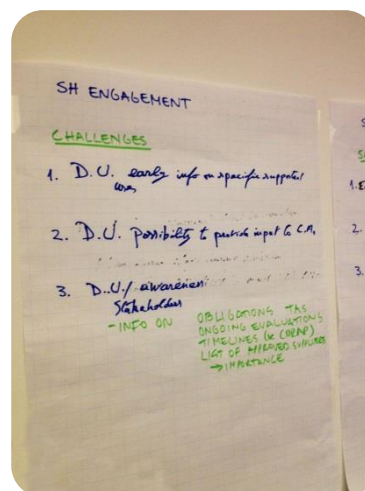 SH ENGAGEMENT
CHALLENGES
1. D.U. early info on specific supported
uses
2. D.U. possibility to provide input to C.A.
3. D.U./ awareness
Stakeholders
- INFO ON OBLIGATIONS TAS
ONGOING EVALUATIONS
TIMELINES (x CORAP)
LIST OF APPROVED SUPPLIERS
→ IMPORTANCE
S
1. E
2.
3.